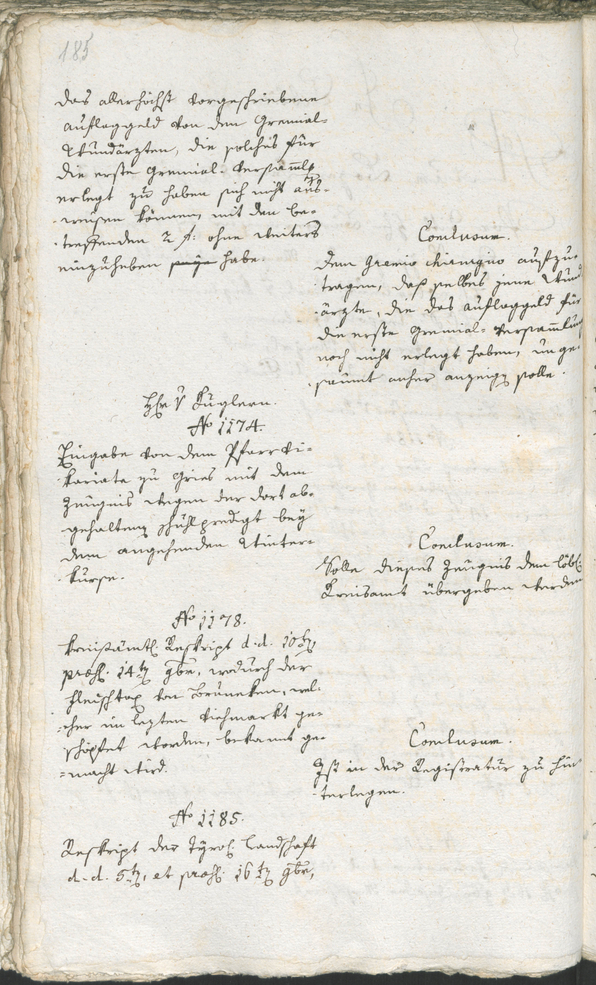 185
das allerhöchst vorgeschriebene
auflaggeld von den Gremial-
Wundärzten, die solches für
die erste Gremial-Versamlg
erlegt zu haben sich nicht aus-
weisen können, mit den be-
treffenden 2 f: ohne weiters
einzuheben habe.
Conclusum.
Dem Gremio chirurgico aufzu-
tragen, daß selbes jene Wund
ärzte, die das auflaggeld für
die erste Gremial-Versammlung
noch nicht erlegt haben, unge-
säumt anher anzeigen solle.
Hr v Kuglern.
No 1174.
Eingabe von dem Pfarrvi-
kariate zu Gries mit dem
Zeugnis wegen der dort ab-
gehaltenen Schulpredigt bey
dem angehenden Winter-
kurse.
Conclusum.
Solle dieses Zeugnis dem löbl.
Kreisamt übergeben werden
No 1178.
Kreisämtl. Reskript d. d. 10ten
præs. 14ten 9bre, wodurch der
Fleischtax von Brunecken, wel-
cher im lezten Viehmarkt ge-
schöpfet worden, bekannt ge-
macht wird.
Conclusum.
Ist in der Registratur zu hin
terlegen.
No 1185.
Reskript der Tyrol. Landschaft
d. d. 5ten, et præs. 16ten 9bre,